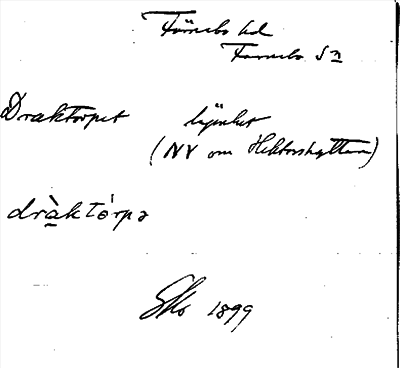 Färnebo hd
Farnebo Sn
Draktorpet lägenhet
(NV om Hektorshyttan)
dràktórpə
Sko 1899